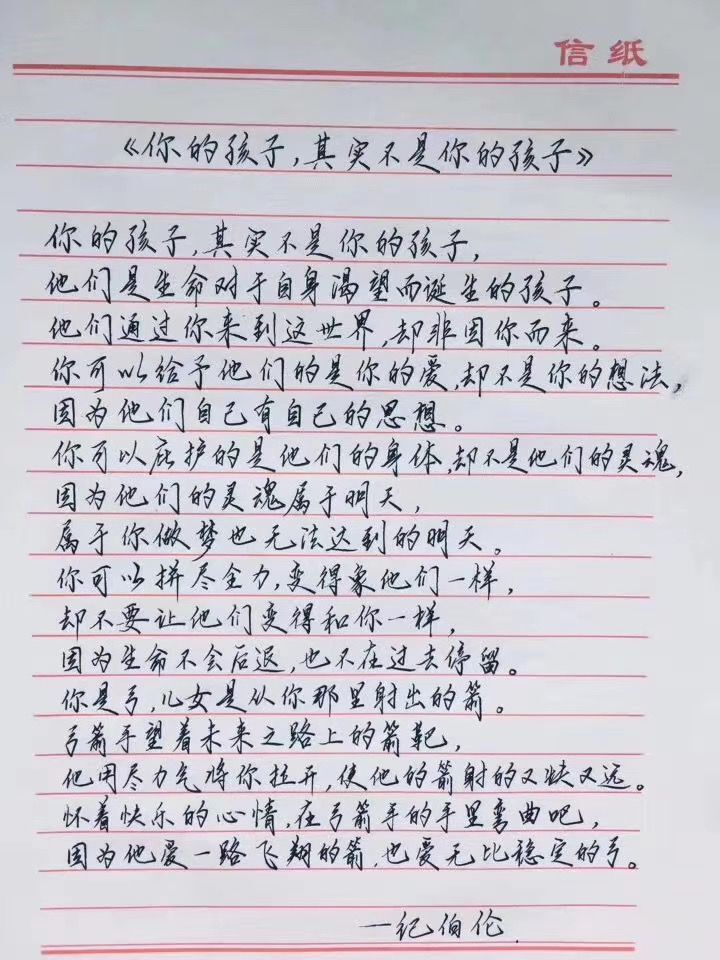 信纸
《你的孩子,其实不是你的孩子》
你的孩子,其实不是你的孩子,
他们是生命对于自身渴望而诞生的孩子。
他们通过你来到这世界,却非因你而来。
你可以给予他们的是你的爱,却不是你的想法,
因为他们自己有自己的思想。
你可以庇护的是他们的身体,却不是他们的灵魂,
因为他们的灵魂属于明天,
属于你做梦也无法达到的明天。
你可以拼尽全力,变得象他们一样,
却不要让他们变得和你一样,
因为生命不会后退,也不在过去停留。
你是弓,儿女是从你那里射出的箭。
弓箭手望着未来之路上的箭靶,
他用尽力气将你拉开,使他的箭射的又快又远。
怀着快乐的心情,在弓箭手的手里弯曲吧,
因为他爱一路飞翔的箭,也爱无比稳定的弓。
—纪伯伦